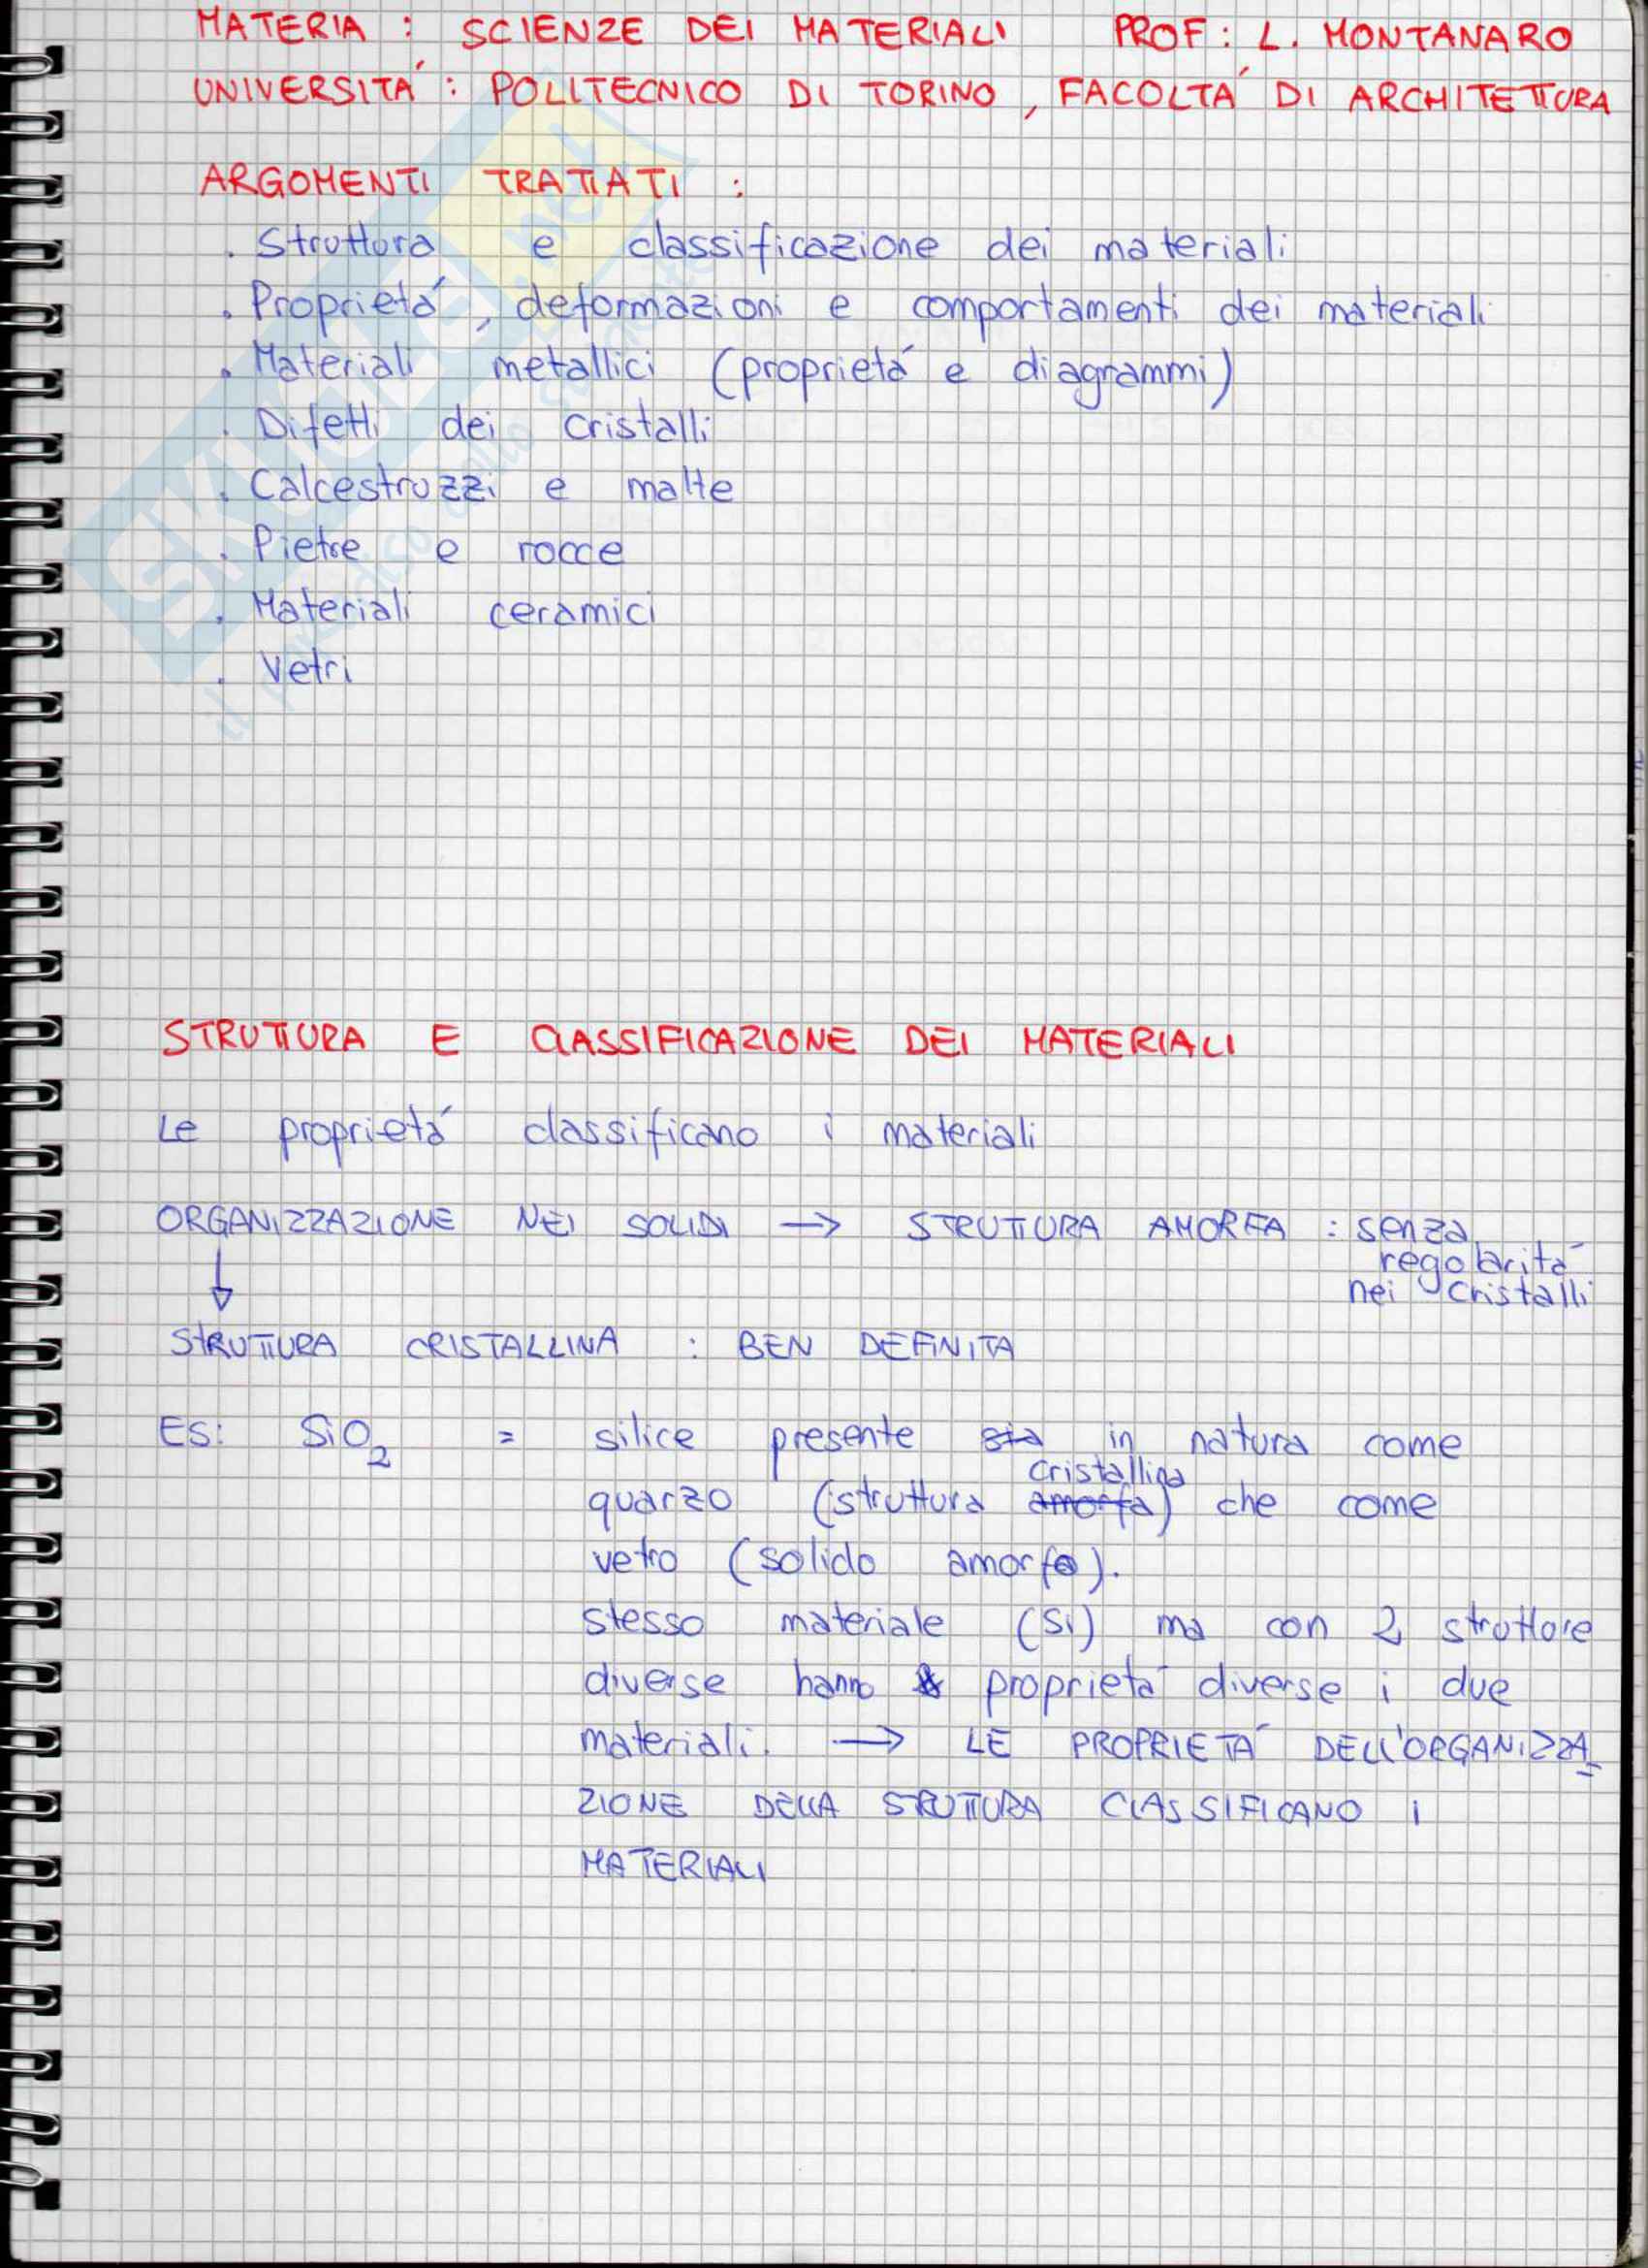 MATERIA : SCIENZE DEI MATERIALI PROF: L. MONTANARO
UNIVERSITÁ : POLITECNICO DI TORINO , FACOLTÁ DI ARCHITETTURA
ARGOMENTI TRATTATI :
. Struttura e classificazione dei materiali
. Proprietá, deformazioni e comportamenti dei materiali
. Materiali metallici (proprietá e diagrammi)
. Difetti dei cristalli
. Calcestruzzi e malte
. Pietre e rocce
. Materiali ceramici
. Vetri
SKUOLA.net
STRUTTURA E CLASSIFICAZIONE DEI MATERIALI
Le proprietá classificano i materiali
ORGANIZZAZIONE NEI SOLIDI → STRUTTURA AMORFA : senza
regolaritá
nei cristalli
↓
STRUTTURA CRISTALLINA : BEN DEFINITA
ES: SiO2 = silice presente sia in natura come
cristallina
quarzo (struttura amorfa) che come
vetro (solido amorfo).
stesso materiale (Si) ma con 2 strutture
diverse hanno proprietá diverse i due
materiali. → LE PROPRIETÁ DELL'ORGANIZZA-
ZIONE DELLA STRUTTURA CLASSIFICANO I
MATERIALI